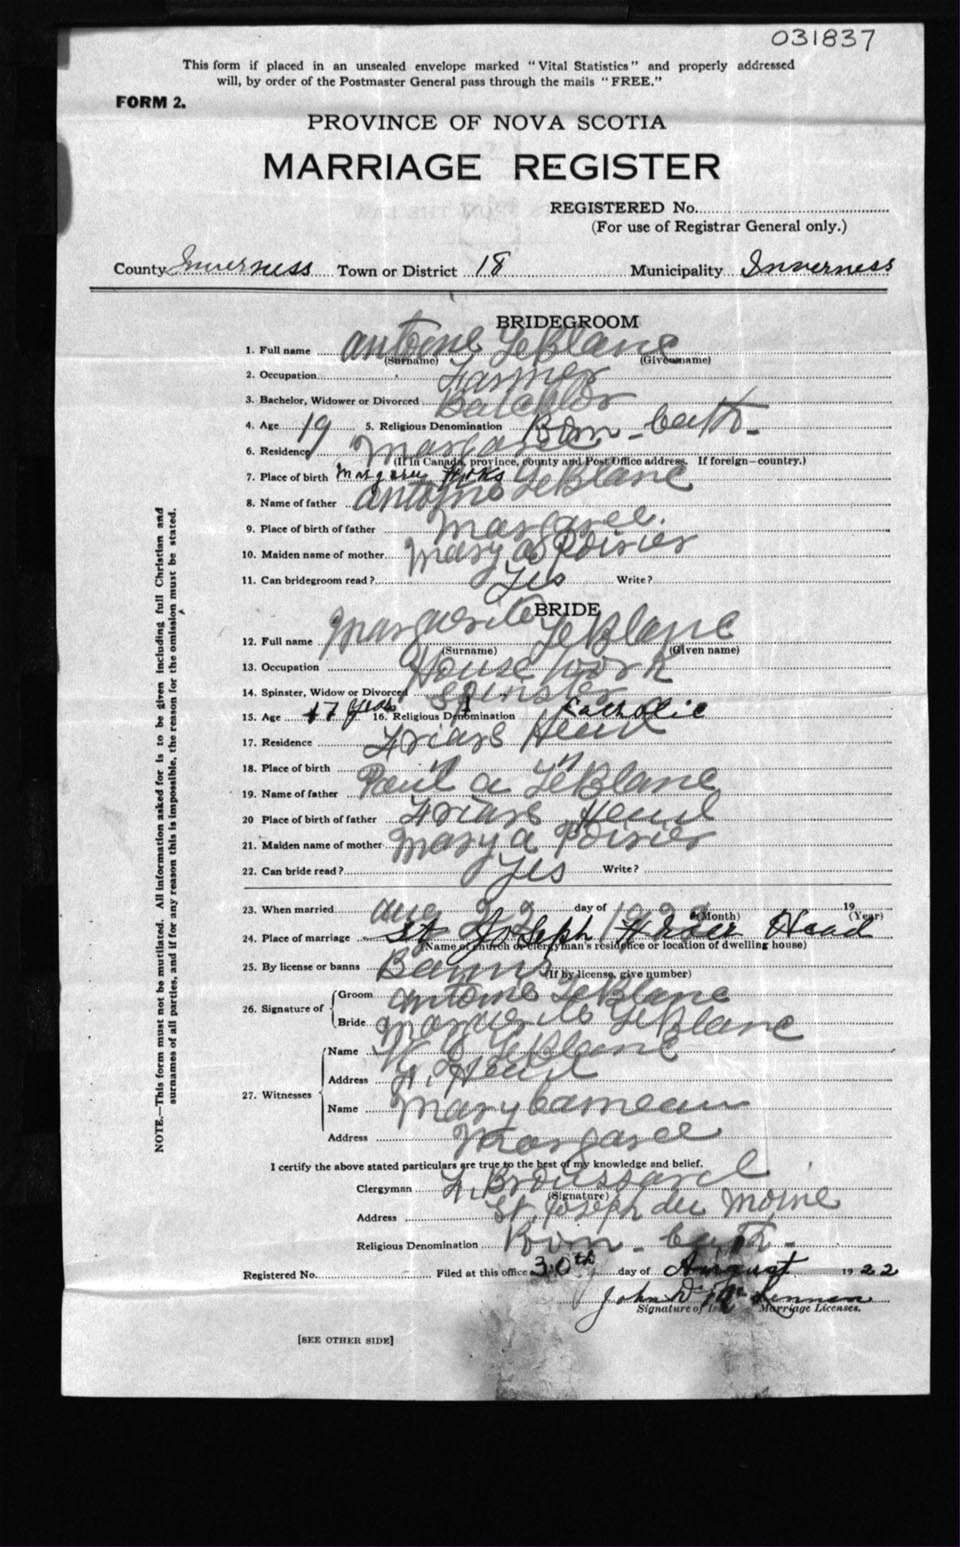 031837
This form if placed in an unsealed envelope marked "Vital Statistics" and properly addressed
will, by order of the Postmaster General pass through the mails "FREE."
FORM 2.
PROVINCE OF NOVA SCOTIA
MARRIAGE REGISTER
REGISTERED No.
(For use of Registrar General only.)
County Inverness Town or District 18 Municipality Inverness
BRIDEGROOM
1. Full name Antoine LeBlanc
(Surname) (Given name)
2. Occupation Farmer
3. Bachelor, Widower or Divorced Batchlor
4. Age 19 5. Religious Denomination Rom - Cath -
6. Residence Margaree
(If in Canada, province, county and Post Office address. If foreign—country.)
7. Place of birth Margaree Forks
8. Name of father Antoine LeBlanc
9. Place of birth of father Margaree.
10. Maiden name of mother Mary A Poirier
11. Can bridegroom read? Yes Write?
BRIDE
12. Full name Marguerite LeBlanc
(Surname) (Given name)
13. Occupation House work
14. Spinster, Widow or Divorced Spinster
15. Age 17 years 16. Religious Denomination Catholic
17. Residence Friars Head
18. Place of birth " "
19. Name of father Paul A LeBlanc
20 Place of birth of father Friars Head
21. Maiden name of mother Mary A Poirier
22. Can bride read? Yes Write?
23. When married Aug 22 day of 1922 19
(Month) (Year)
24. Place of marriage St Joseph Head
(Name of church or clergyman's residence or location of dwelling house)
25. By license or banns Banns
(If by license, give number)
26. Signature of Groom Antoine LeBlanc
Bride Marguerite LeBlanc
27. Witnesses Name LeBlanc
Address F. Head
Name Mary
Address Margaree
I certify the above stated particulars are true to the best of my knowledge and belief.
Clergyman Broussard
(Signature)
Address St. Joseph du Moine
Religious Denomination Rom - Cath -
Registered No. Filed at this office 30th day of August 1922
John D. McLennan
Signature of Marriage Licenses.
[SEE OTHER SIDE]
NOTE.—This form must not be mutilated. All information asked for is to be given including full Christian and
surnames of all parties, and if for any reason this is impossible, the reason for the omission must be stated.